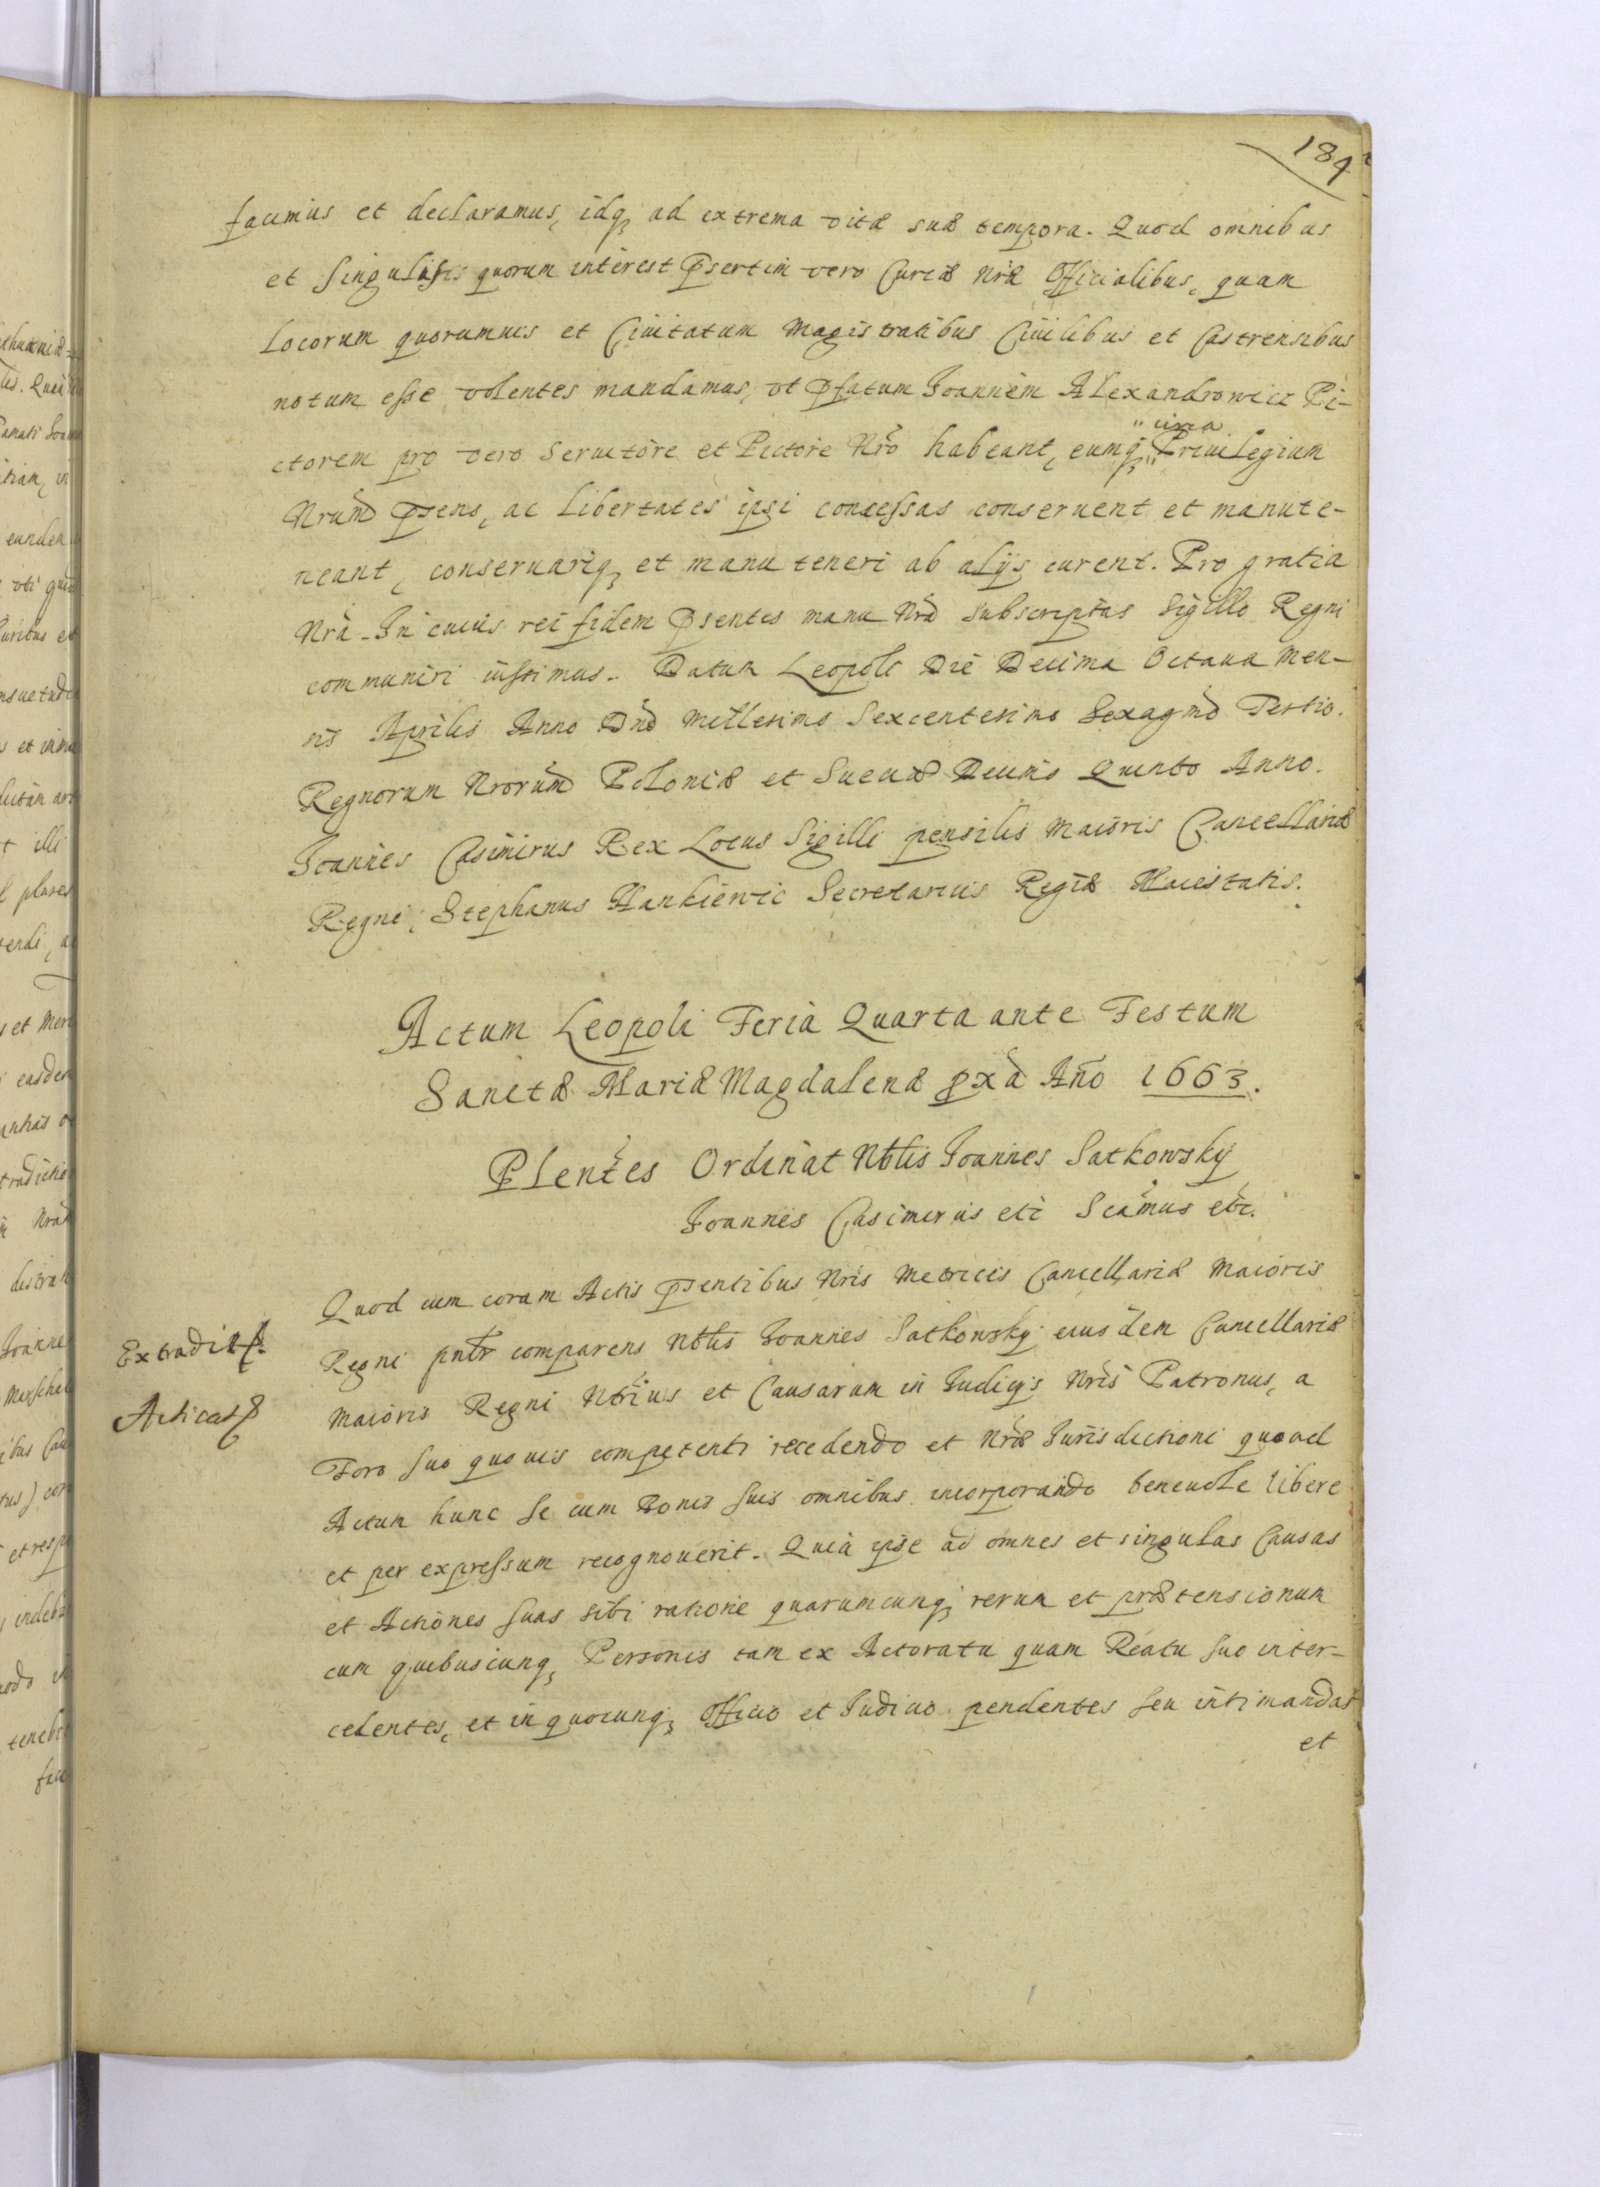 184
facimus et declaramus, idq, ad extrema vitæ suæ tempora. Quod omnibus
et singulis quorum interest Psertim vero Curiæ Nræ Officialibus, quam
Locorum quorumuis et Ciuitatum Magistratibus Ciuilibus et Castrensibus
notum esse volentes mandamus, vt Pfatum Joannem Alexandrowicz Pi-
ctorem pro vero Seruitore et Pictore Nro habeant, eumq, Priuilegium
"circa
Nrum Psens, ac Libertates ipsi concessas conseruent et manute-
neant, conseruariq, et manu teneri ab alijs curent. Pro gratia
Nra. In cuius rei fidem Psentes manu Nra Subscriptas Sigillo Regni
communiri iussimus. Datum Leopoli Die Decima Octaua Men-
sis Aprilis Anno Dno Millesimo Sexcentesimo Sexagmo Tertio.
Regnorum Nrorum Poloniæ et Sueciæ Decimo Quinto Anno.
Joannes Casimirus Rex Locus Sigilli pensilis Maioris Cancellariæ
Regni, Stephanus Hankiewic Secretarius Regiæ Maiestatis.
Actum Leopoli Feria Quarta ante Festum
Sanctæ Mariæ Magdalenæ pxa Año 1663.
Plentes Ordinat Nblis Joannes Satkowsky
Joannes Casimirus etc Scamus etc.
Quod cum coram Actis Psentibus Nris Metricis Cancellariæ Maioris
Extradit
Regni pntr comparens Nblis Joannes Satkowsky eiusdem Cancellariæ
Maioris Regni Ntrius et Causarum in Judicijs Nris Patronus, a
Foro suo quouis competenti recedendo et Nræ Jurisdictioni quoad
Actum hunc se cum Bonis suis omnibus incorporando beneuole libere
et per expressum recognouerit. Quia ipse ad omnes et singulas Causas
et Actiones suas sibi ratione quarumcunq, rerum et prætensionum
cum quibuscunq, Personis tam ex Actoratu quam Reatu suo inter-
cedentes, et in quocunq, Officio et Judicio pendentes seu intimandas
et